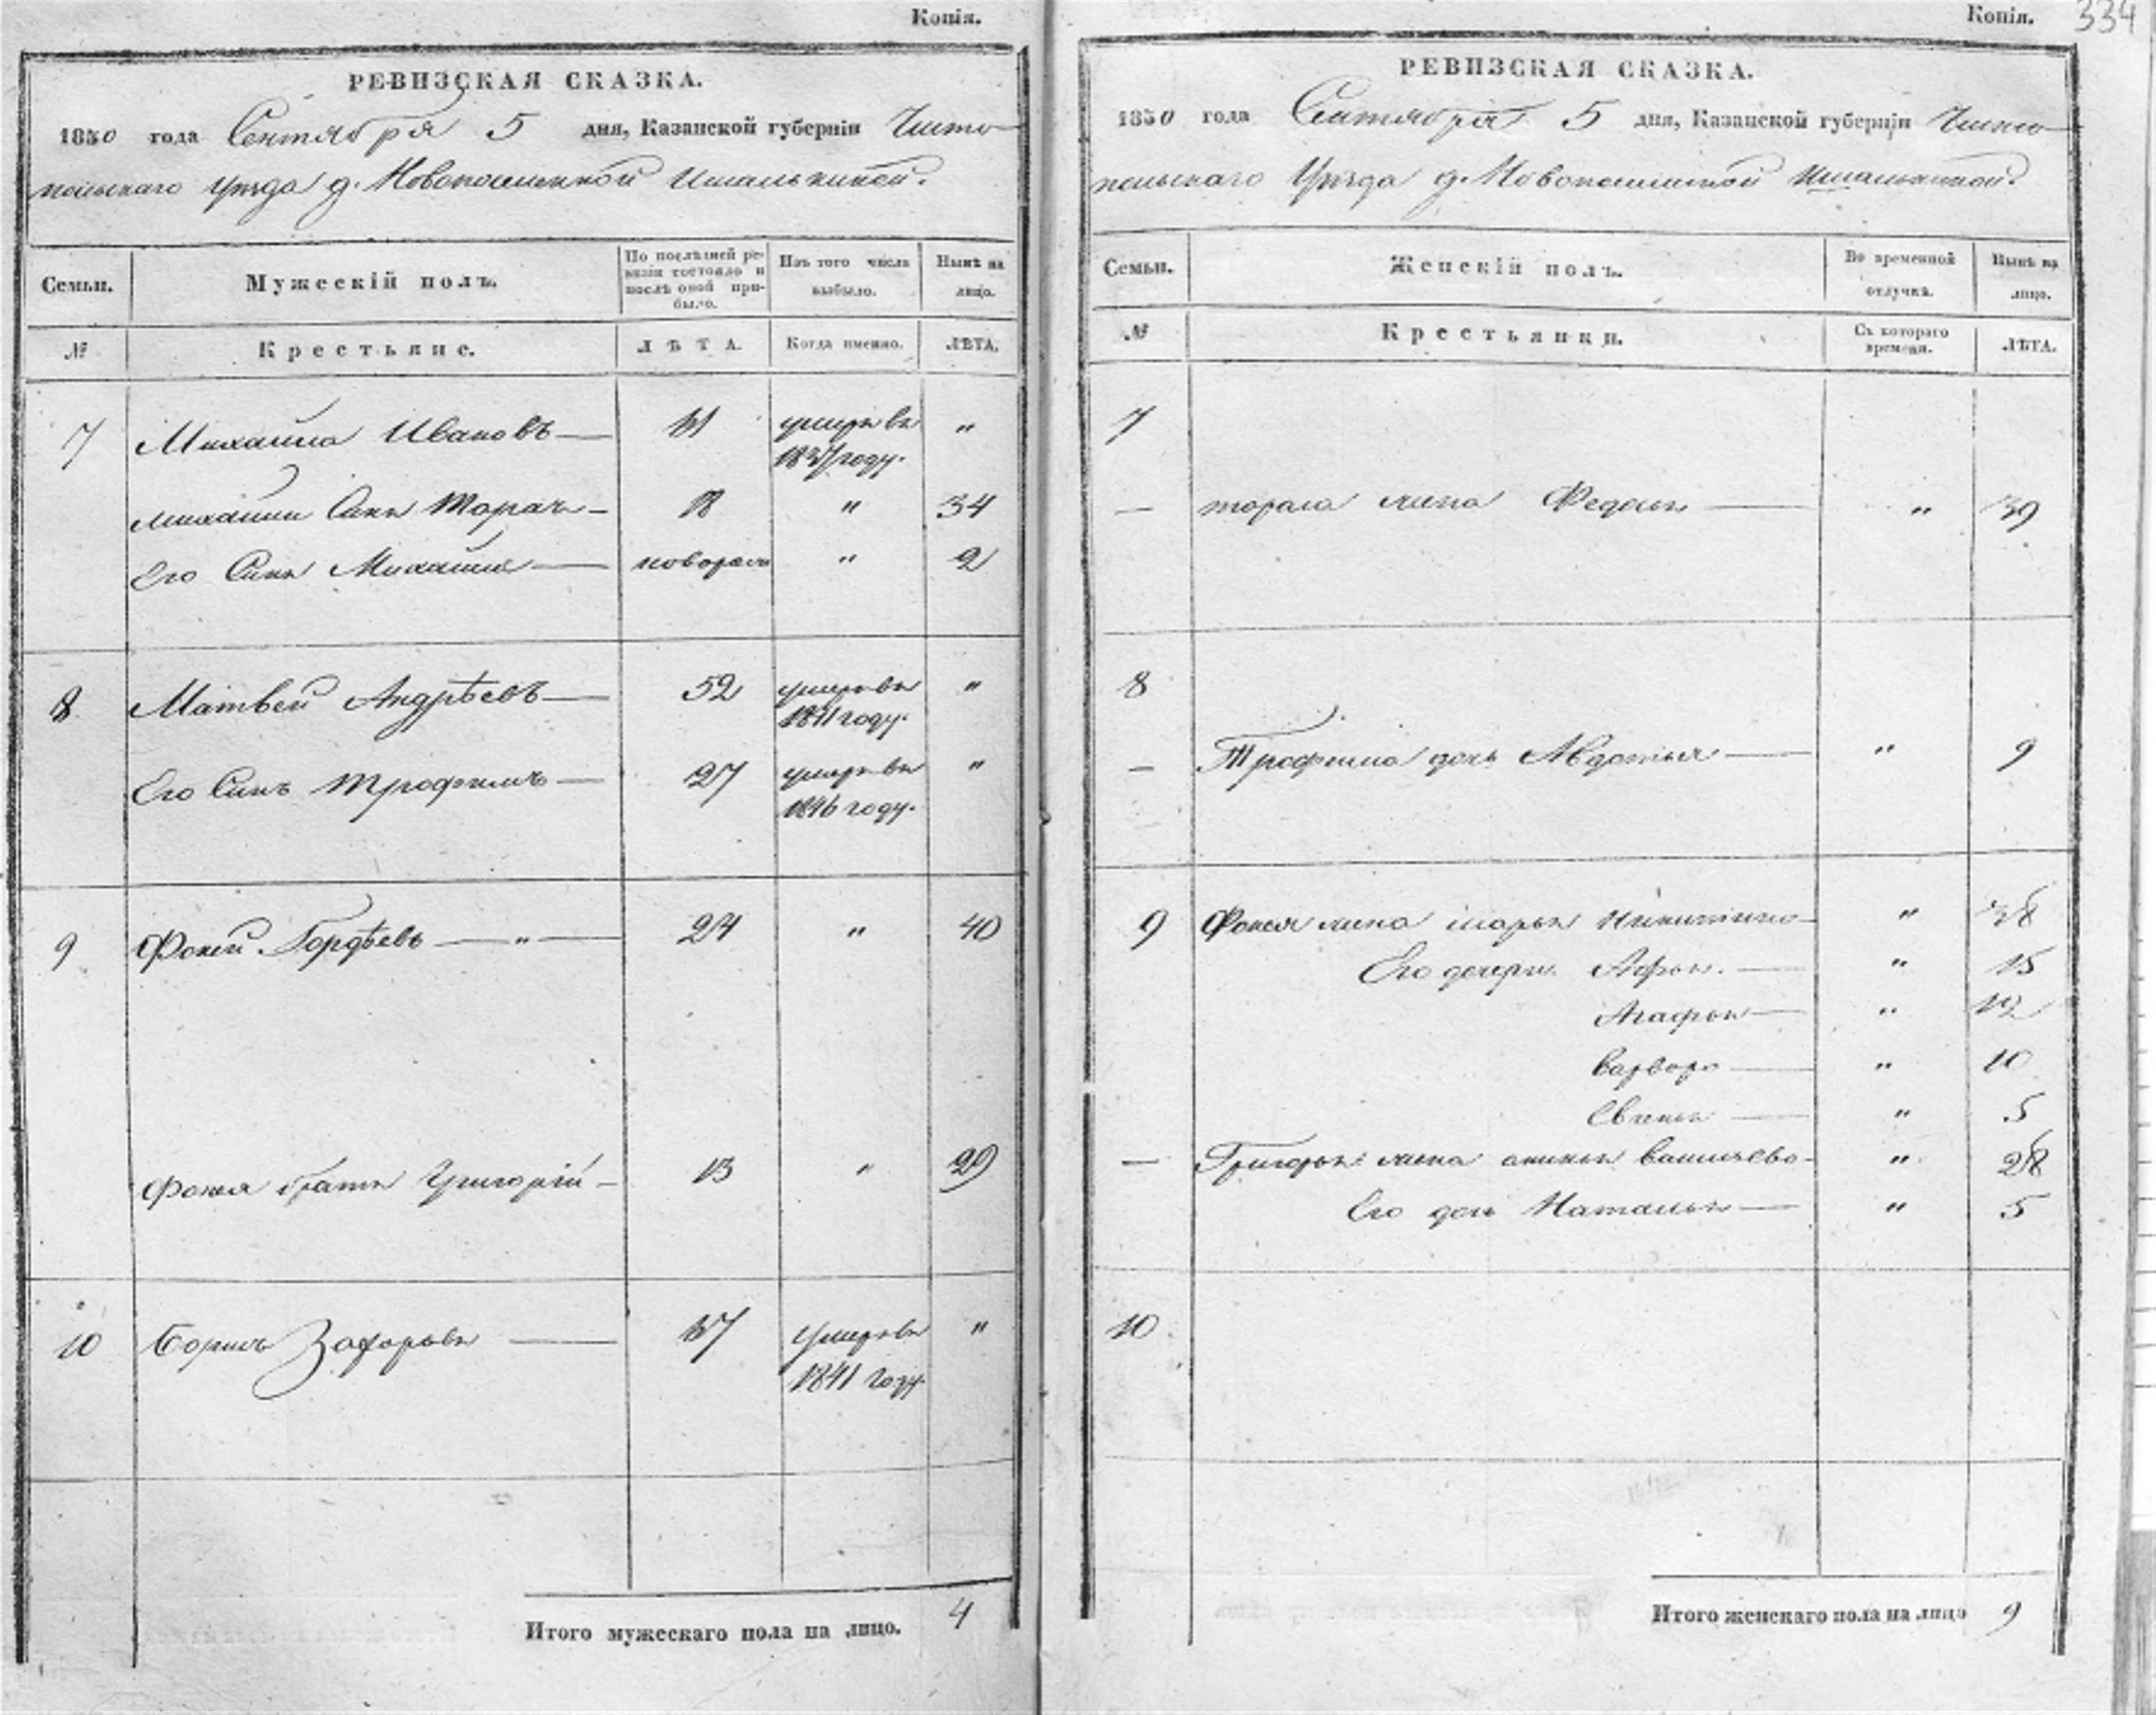 Копія.
РЕВИЗСКАЯ СКАЗКА.
1850 года Сентября 5 дня, Казанской губерніи Чисто-
польскаго Уѣзда д. Новопоселенной Ишалькиной.
Семьи. Мужескій полъ. По послѣдней ревизіи состояло и послѣ оной прибыло. Изъ того числа выбыло. Нынѣ на лицо.
№ Крестьяне. ЛѢТА. Когда именно. ЛѢТА.
7 Михайла Ивановъ — умеръ въ "
году.
Михайлы Сынъ Тарас — 18 " 34
Его Сынъ Михайла — новорож " 2
8 Матвей Андрѣевъ — 52 умеръ въ "
1841 году.
Его Сынъ Трофимъ — 27 умеръ въ "
1846 году.
9 Фокей Гордѣевъ — " — 24 " 40
Фокея братъ Григорій — 13 " 29
10 Борисъ Захаровъ — умеръ въ "
1841 году.
Итого мужескаго пола на лицо. 4
Копія. 334
РЕВИЗСКАЯ СКАЗКА.
1850 года Сентября 5 дня, Казанской губерніи Чисто-
польскаго Уѣзда д. Новопоселенной Ишалькиной.
Семьи. Женскій полъ. Во временной отлучкѣ. Нынѣ на лицо.
№ Крестьянки. Съ котораго времени. ЛѢТА.
7
— тараса жена Федось — " 39
8
— Трофима дочь Авдотья — " 9
9 Фокея жена марья Никитина — " 38
Его дочери Афрос. — " 15
Агафья — " 12
Варвара — " 10
Евгенья — " 5
— Григорья жена аксинья васильева — " 28
Его дочь Наталья — " 5
10
Итого женскаго пола на лицо 9